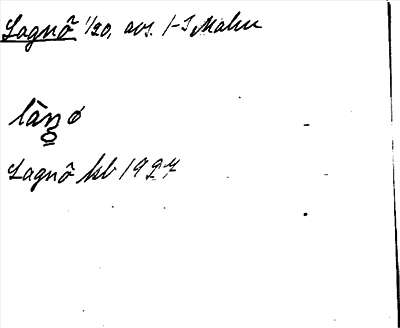 Lagnö 1/20, avs. 1-3 Malm
làngø
Lagnö kb 1927